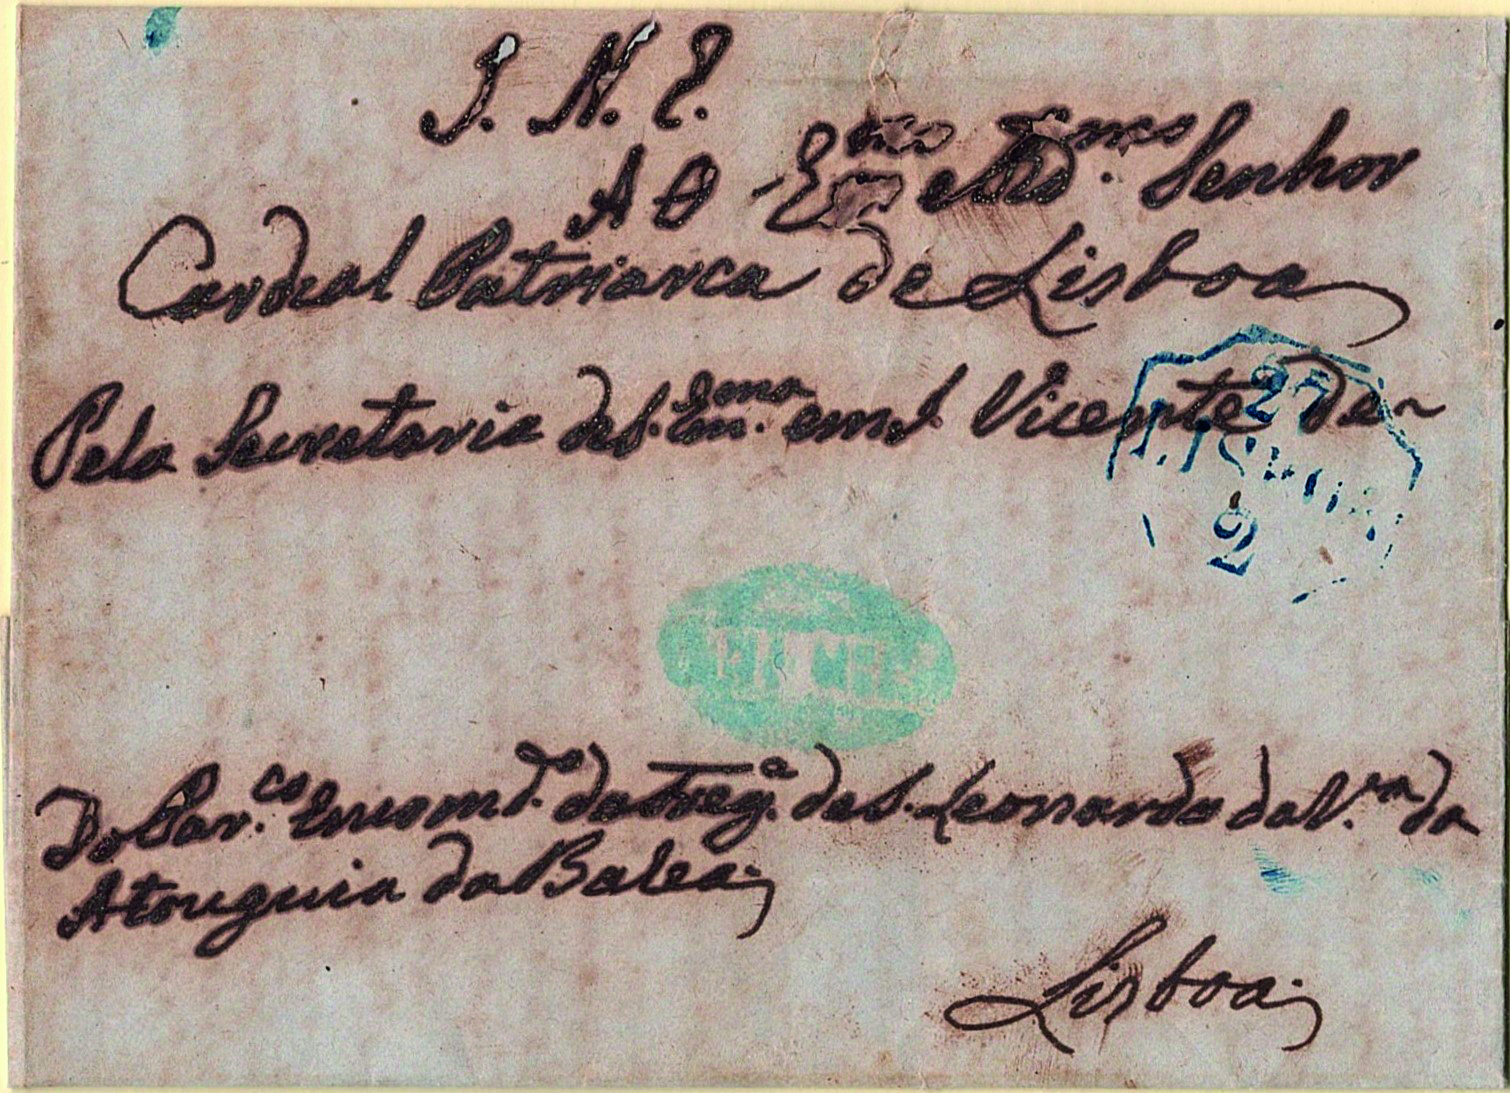 S. N. P.
AO Emo e Rdo. mo Senhor
Cardeal Patriarca de Lisboa
Pela Secretaria de S. Em.ma em S. Vicente de
27
LISBOA
2
Do Par.co Encomd.do da Freg.a de S. Leonardo da V.ra da
Atouguia da Balea
Lisboa